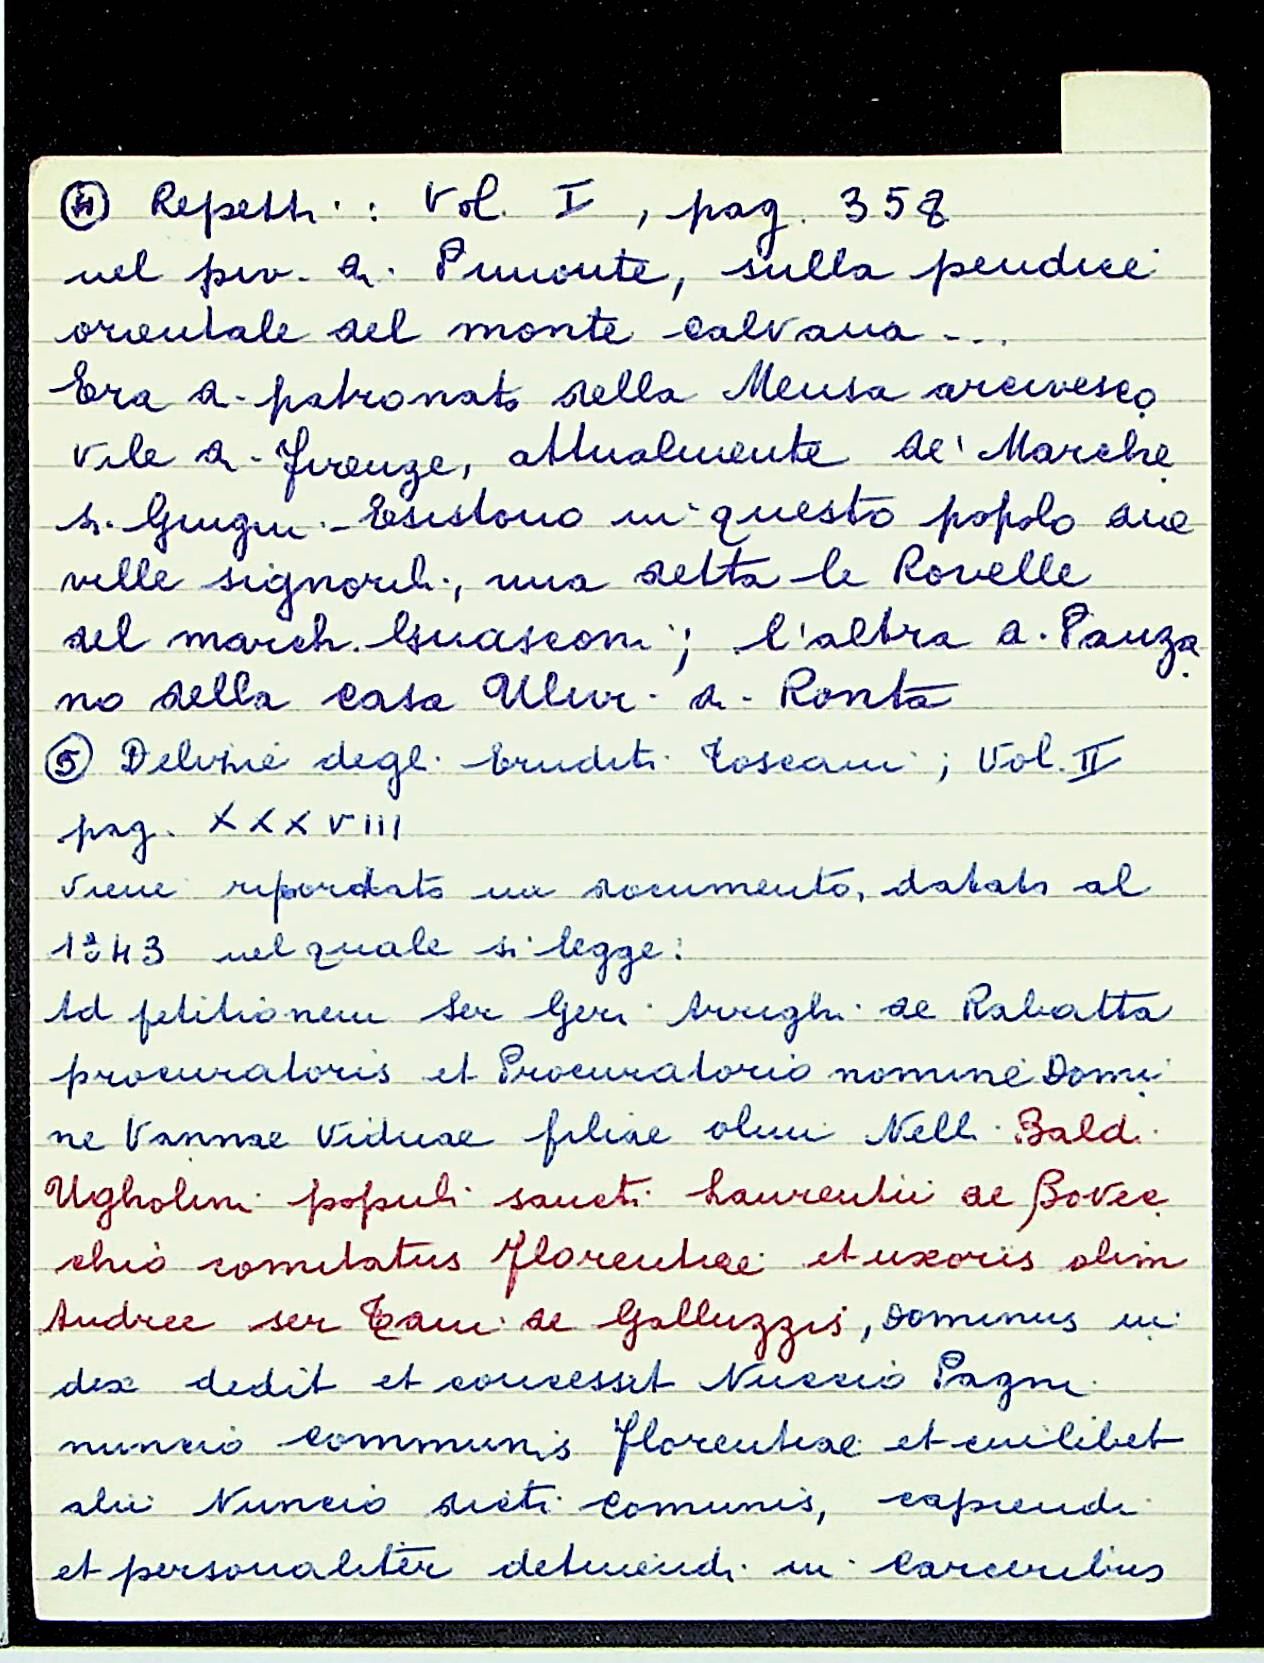 ④ Repetti: Vol. I, pag. 358
nel piv. di Pimonte, sulla pendice
orientale del monte Calvana ...
Era di patronato della Mensa arcivesco
vile di Firenze, attualmente de' Marche
si Ginugni. Esistono in questo popolo due
ville signorili, una detta le Rovelle
del march. Guasconi; l'altra di Panza
no della casa Ulivi di Ronta
⑤ Delizie degli Eruditi Toscani; Vol. II
pag. XXXVIII
viene riportato un documento, datato al
1343 nel quale si legge:
Ad petitionem Ser Geri Arrighi de Rabatta
procuratoris et Procuratorio nomine Domi
ne Vannae Viduae filiae olim Nelli Baldi
Ugholini populi sancti Laurentii de Bovec
chio comitatus Florentiae et uxoris olim
Andree ser Tani de Galluzzis, Dominus iu
dex dedit et concessit Nuccio Pagni
nuncio Communis Florentiae et cuilibet
alii Nuncio dicti Comunis, capiendi
et personaliter detinendi in Carceribus